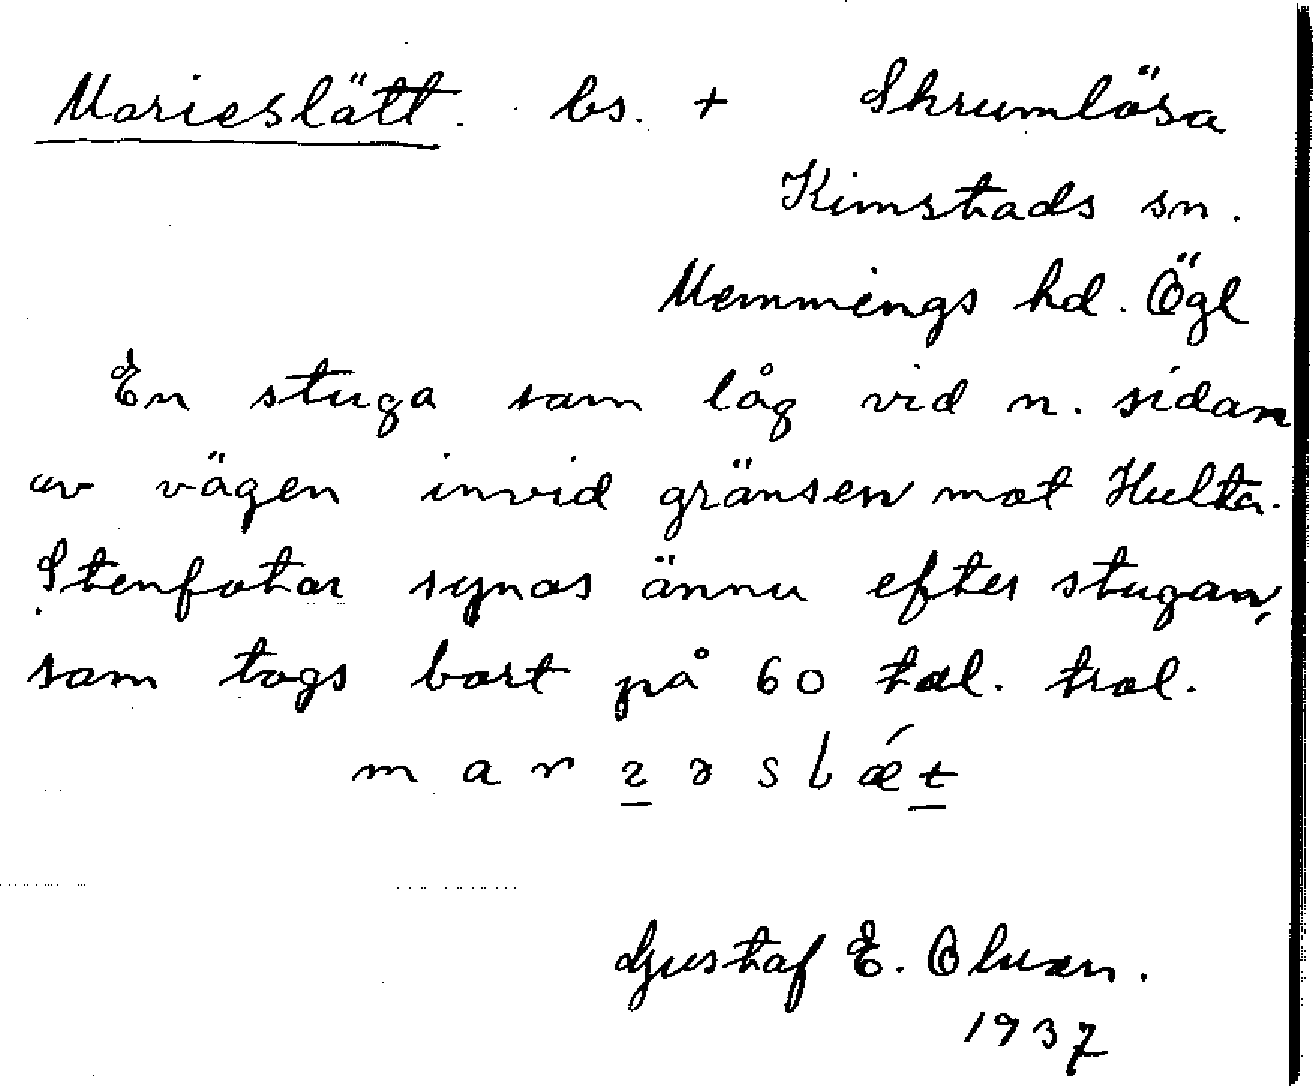 Marieslätt. bs. + Skrumlösa
Kimstads sn.
Memmings hd. Ögl
En stuga som låg vid n. sidan
av vägen invid gränsen mot Hulta.
Stenfotar synas ännu efter stugan,
som togs bort på 60 tal. trol.
Gustaf E. Olsson.
1937